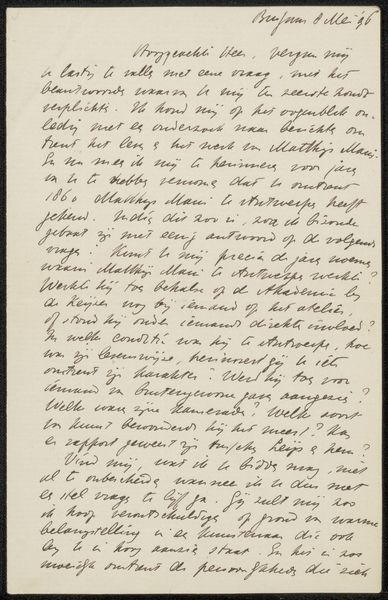 Bussum 8 Mei '96
Hooggeachte Heer, vergun mij
u lastig te vallen met eene vraag, met het
beantwoorden waarvan u mij ten zeerste zoudt
verplichten. Ik houd mij op het oogenblik on-
ledig met een onderzoek naar berichten om-
trent het leven & het werk van Matthijs Maris.
En nu meen ik mij te herinneren voor jaren
van u te hebben vernomen dat u omtrent
1860 Matthijs Maris te Antwerpen heeft
gekend. Indien dit zoo is, zou ik bizonder
gebaat zijn met eenig antwoord op de volgende
vragen: Kunt u mij precies de jaren noemen
waarin Matthijs Maris te Antwerpen werkte?
Werkte hij toen behalve op de Akademie bij
de Keijser nog bij iemand op het atelier,
of stond hij onder iemands direkten invloed?
In welken conditie was hij te Antwerpen, hoe
was zijn levenswijze, herinnert gij u iets
omtrent zijn karakter? Werd hij toen voor
iemand van buitengewone gaven aangezien?
Welke waren zijne kameraden? Welk soort
van kunst bewonderde hij het meest? Kan
er rapport geweest zijn tusschen Leijs & hem?
Vind mij, wat ik u bidden mag, niet
al te onbescheiden wanneer ik u dus met
een stel vragen te lijf ga. Gij zult mij zoo
ik hoop verontschuldigen op grond van warme
belangstelling in een kunstenaar die ook
bij u in hoog aanzien staat. En het is zoo
moeilijk omtrent de persoonlijkheid die zich